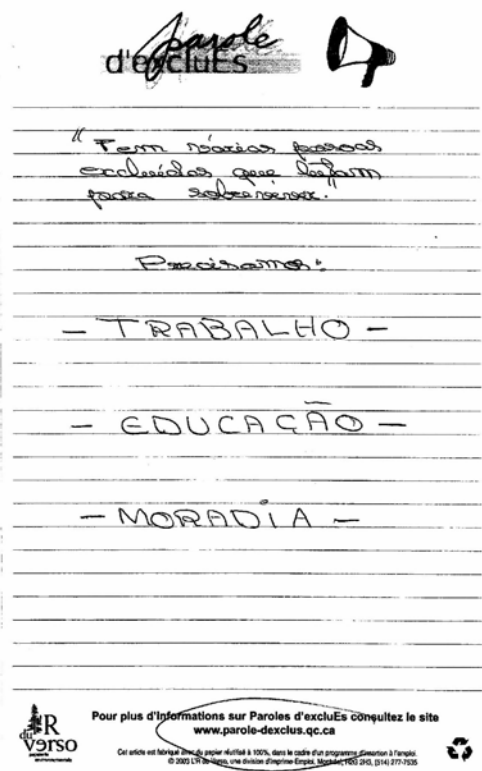 parole
d'excluEs
"Tem várias pessoas
excluídas que lutam
para sobreviver."
Precisamos:
- TRABALHO -
- EDUCAÇÃO -
- MORADIA -
Pour plus d'Informations sur Paroles d'excluEs consultez le site
www.parole-dexclus.qc.ca
du R
verso
papeterie
environnementale
Cet article est fabriqué avec du papier réutilisé à 100%, dans le cadre d'un programme d'insertion à l'emploi.
© 2003 L'R du Verso, une division d'Imprime-Emploi, Montréal, H2G 2H3, (514) 277-7535